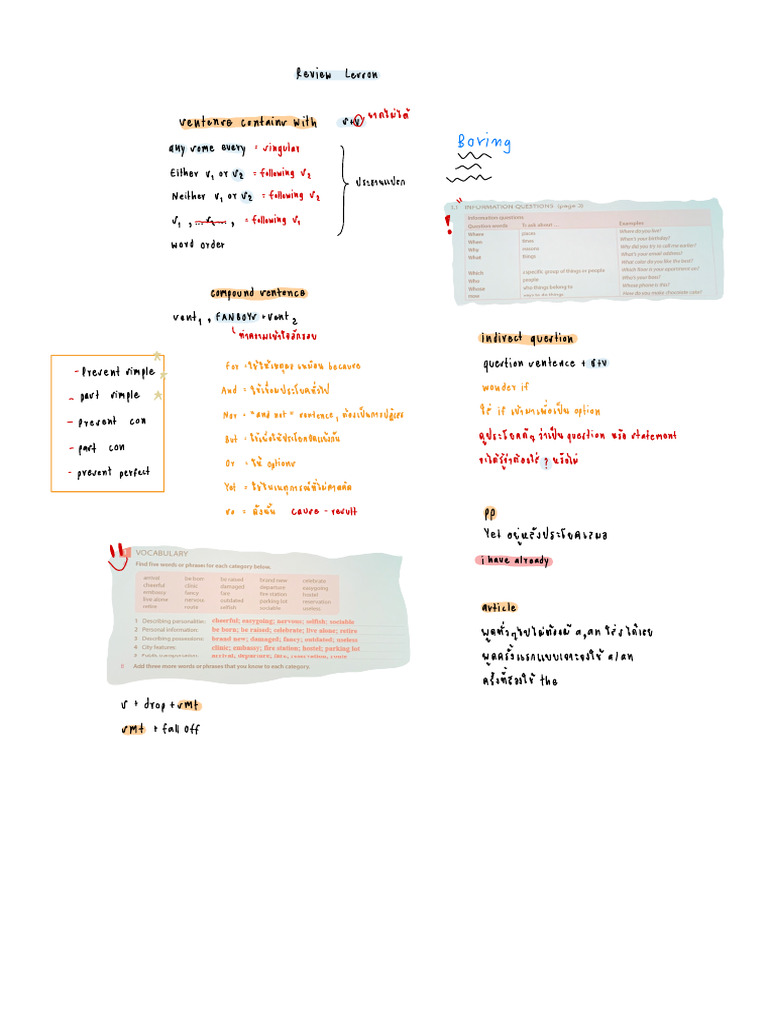 Review Lesson
sentense contains with s+v ขาดไม่ได้
any some every = singular
Either s1 or s2 = following s2
Neither s1 or s2 = following s2
s1 , ...s2... , = following s1
word order
ประธานแปลก
compound sentence
sent1 , FANBOYS + sent2
ทำความเข้าใจอีกรอบ
- Present simple
- past simple
- present con
- past con
- present perfect
For = ใช้ให้เหตุผล เหมือน because
And = ใช้เชื่อมประโยคทั่วไป
Nor = "and not" sentence, ต้องเป็นการปฏิเสธ
But = ใช้เพื่อให้ประโยคขัดแย้งกัน
Or = ให้ options
Yet = ใช้ในเหตุการณ์ที่ไม่คาดคิด
so = ดังนั้น cause - result
VOCABULARY
Find five words or phrases for each category below.
arrival be born be raised brand new celebrate
cheerful clinic damaged departure easygoing
embassy fancy fare fire station hostel
live alone nervous outdated parking lot reservation
retire route selfish sociable useless
1 Describing personalities: cheerful; easygoing; nervous; selfish; sociable
2 Personal information: be born; be raised; celebrate; live alone; retire
3 Describing possessions: brand new; damaged; fancy; outdated; useless
4 City features: clinic; embassy; fire station; hostel; parking lot
5 Public transportation: arrival, departure, fare, reservation, route
B Add three more words or phrases that you know to each category.
s + drop + smt
smt + fall off
Boring
1.1 INFORMATION QUESTIONS (page 3)
Information questions
Question words To ask about ... Examples
Where places Where do you live?
When times When's your birthday?
Why reasons Why did you try to call me earlier?
What things What's your email address?
What color do you like the best?
Which a specific group of things or people Which floor is your apartment on?
Who people Who's your boss?
Whose who things belong to Whose phone is this?
How ways to do things How do you make chocolate cake?
indirect question
question sentence + s+v
wonder if
ใส่ if เข้ามาเพื่อเป็น option
ดูประโยคดีๆ ว่าเป็น question หรือ statement
จะได้รู้ว่าต้องใส่ ? หรือไม่
pp
Yet อยู่หลังประโยคเสมอ
i have already
article
พูดทั่วๆไปไม่ต้องมี a,an ใส่ s ได้เลย
พูดครั้งแรกแบบเจาะจงใช้ a/an
ครั้งที่สองใช้ the